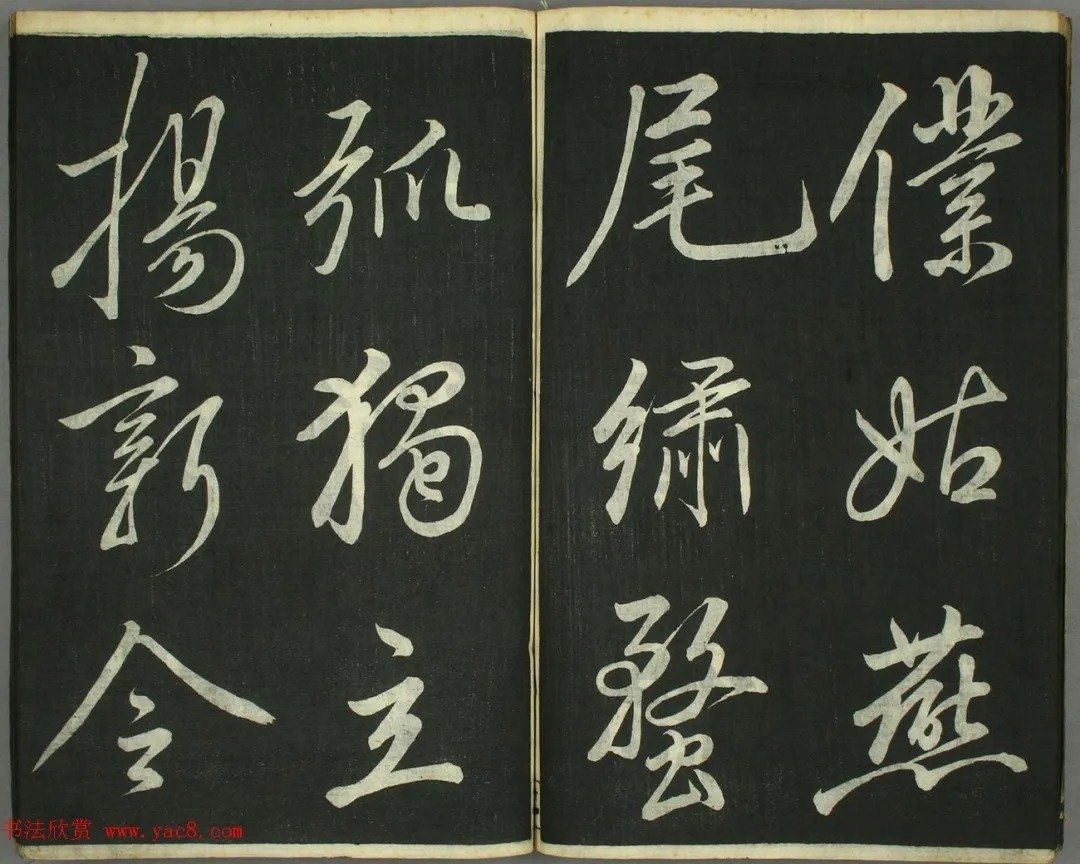 僕姑燕
尾繡蝥
孤獨立
揚新令
书法欣赏 www.yac8.com